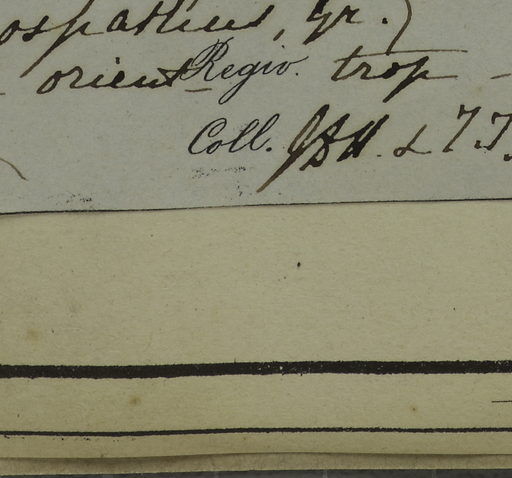 ospathus, Gr.)
orient Regio. trop
Coll. JDH. & TT.